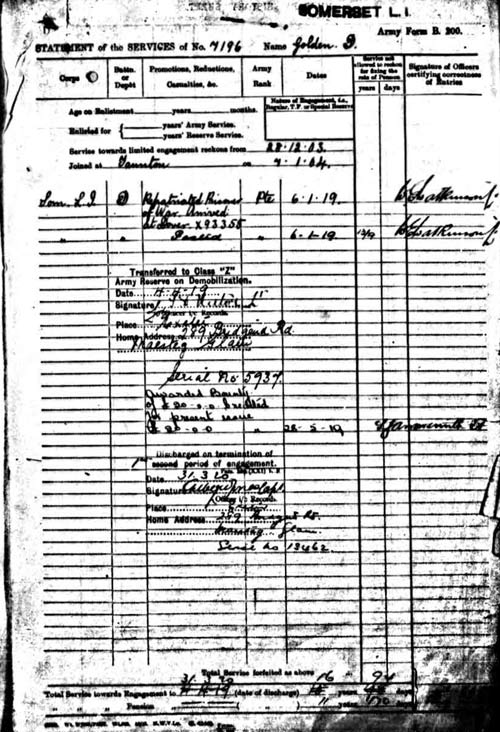 SOMERSET L.I.
Army Form B. 200.
STATEMENT of the SERVICES of No. 7196 Name Golden J.
Corps
Battn. or Depôt
Promotions, Reductions, Casualties, &c.
Army Rank
Dates
Service not allowed to reckon for fixing the rate of Pension
years days
Signature of Officers certifying correctness of Entries
Age on Enlistment years months.
Nature of Engagement, i.e., Regular, T.F. or Special Reserve
Enlisted for { years' Army Service.
years' Reserve Service.
Service towards limited engagement reckons from 28.12.03.
Joined at Taunton on 7.1.04.
Som. L I D Repatriated Prisoner Pte 6.1.19.
of War. Arrived
at Dover X93358
" " Posted " 6-1-19
Transferred to Class "Z"
Army Reserve on Demobilization.
Date 4.4.19
Signature
Officer i/c Records.
Place Exeter
Home Address 289 Bridgend Rd
Maesteg Glam
Serial No 5937
Awarded Bounty
of £20-0-0 credited
present issue
£20-0-0 " 28-5-19
Discharged on termination of
second period of engagement.
Date 31.3.20
Signature Capt.
Officer i/c Records.
Place Exeter
Home Address
Maesteg Glam
Serial No 13462
Total Service forfeited as above
Total Service towards Engagement to (date of discharge) years days
" " " Pension " years days